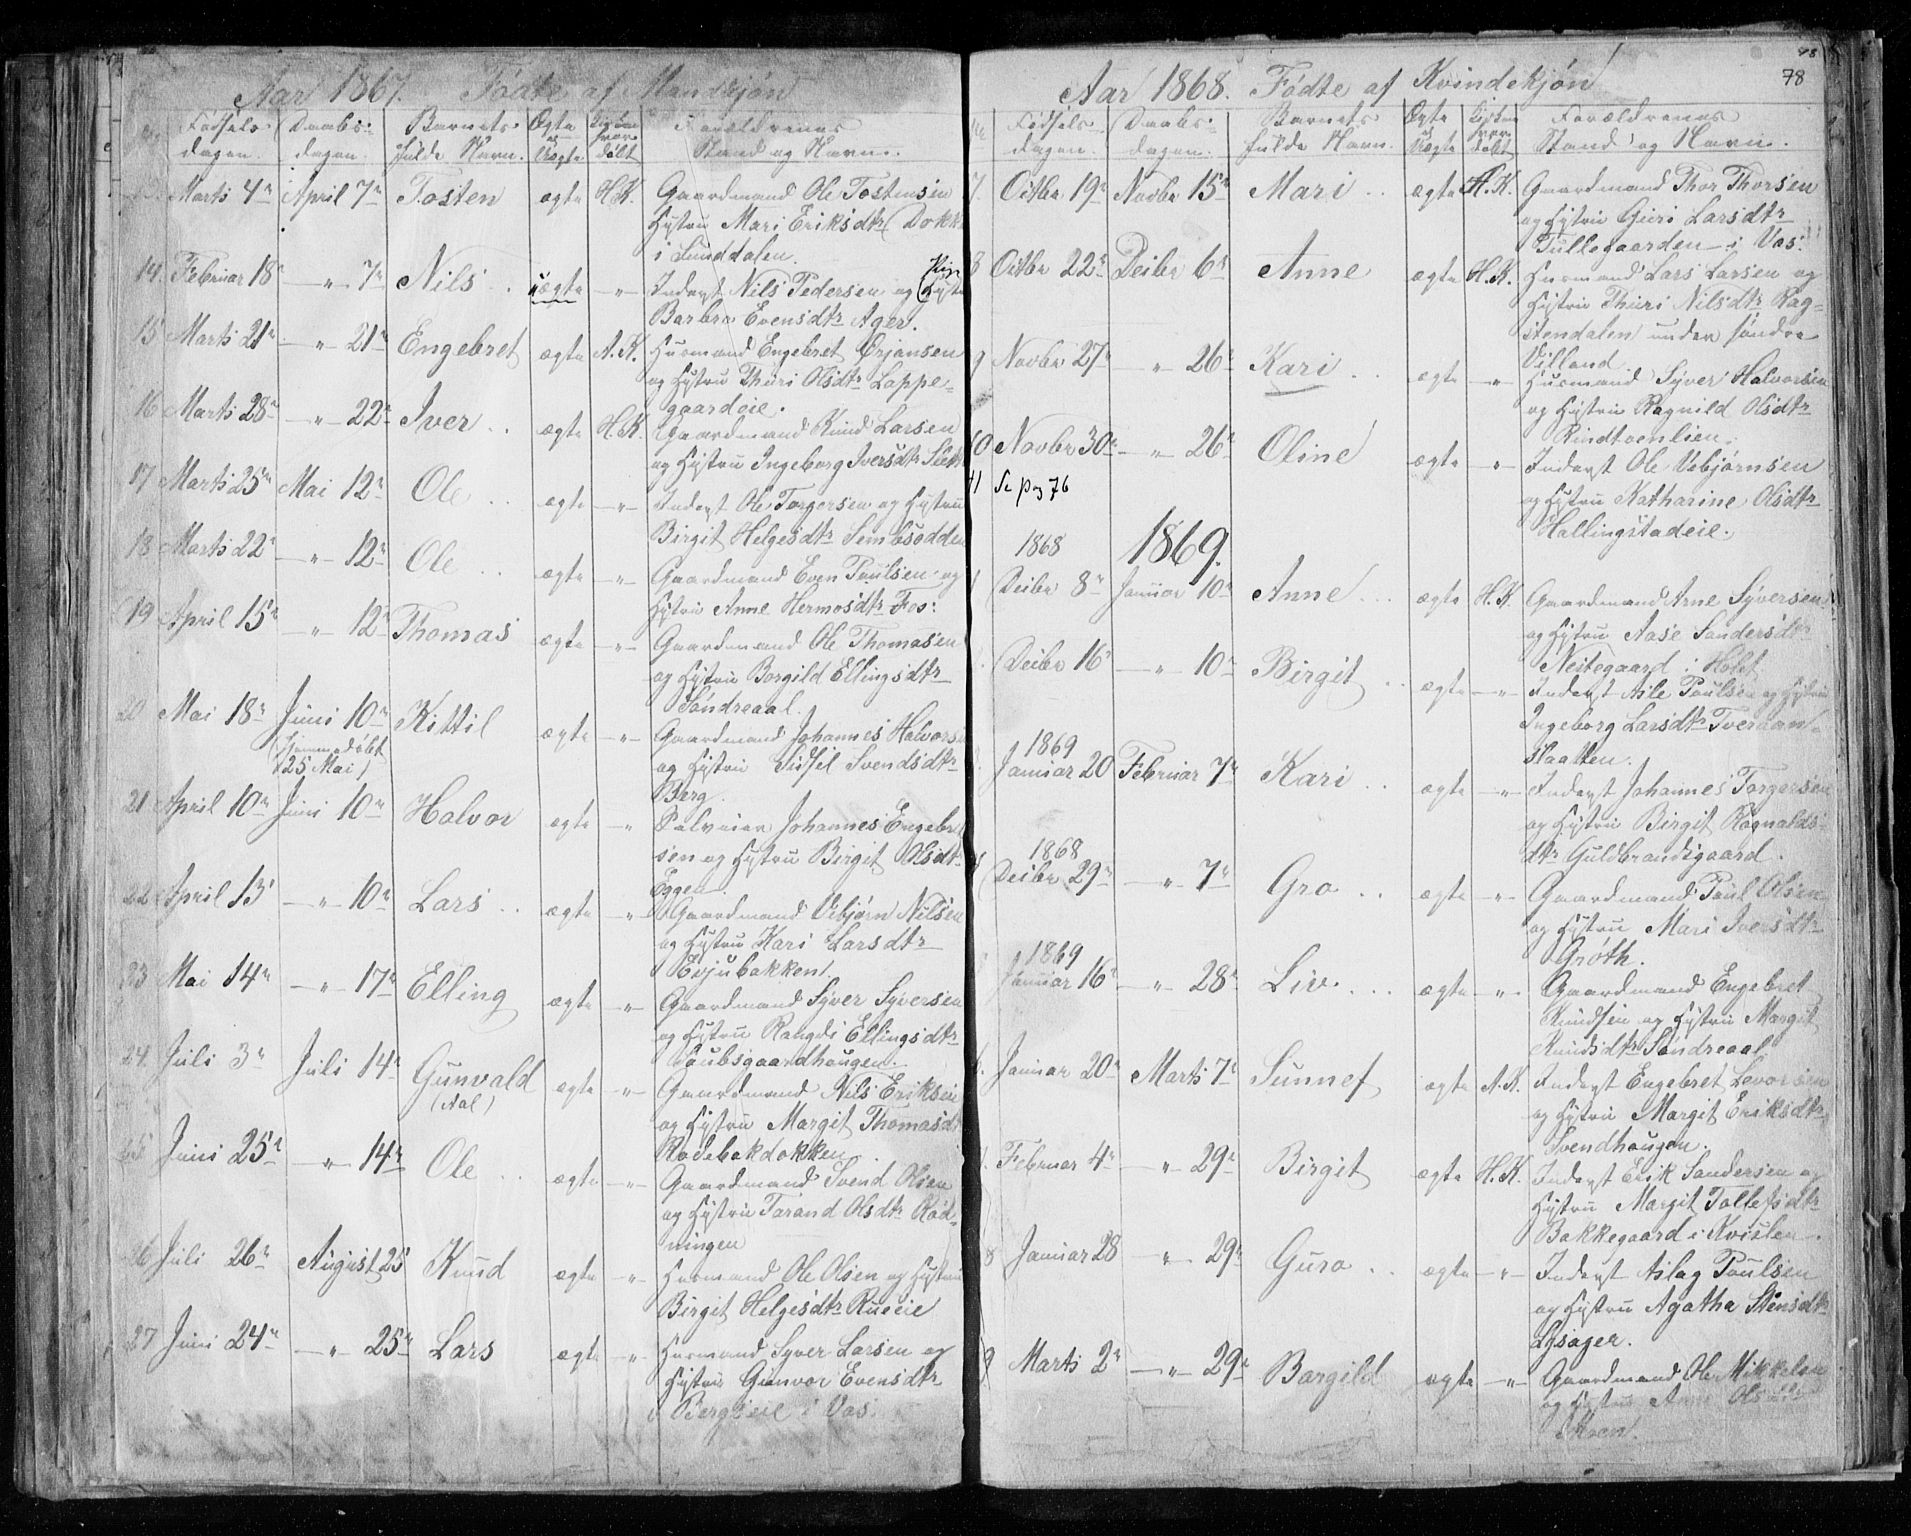 Aar 1867. Fødte af Mandkjøn
Fødsels dagen. Daabs- dagen. Barnets fulde Navn. Ægte Uægte døbt Forældrenes Stand og Navn.
Marts 4de April 7de Tosten ægte H.K. Gaardmand Ole Tostensen
Hustru Mari Eriksdtr Dokk
i Sunddalen.
14. Februar 18de —"— 7de Nils .. uægte —"— Inderst Nils Pedersen og
Barbra Evensdtr Ager.
15 Marts 21de —"— 21de Engebret ægte A.K. Husmand Engebret Ørjansen
og Hustru Thuri Olsdtr Loppe-
gaardeie.
16 Marts 28de —"— 22de Iver .. ægte H.K. Gaardmand Knud Larsen
og Hustru Ingeborg Iversdtr
17 Marts 25de Mai 12te Ole .. ægte —"— Inderst Ole Torgersen og Hustru
Birgit Helgesdtr Sembsodden
18 Marts 22de —"— 12te Ole .. ægte —"— Gaardmand Even Paulsen og
Hustru Anne Hermosdtr Fos.
19 April 15de —"— 12te Thomas ægte —"— Gaardmand Ole Thomasen
og Hustru Borgild Ellingsdtr
Søndreaal.
20 Mai 18de Juni 10de Kittil ægte —"— Gaardmand Johannes Halvorsen
(hjemmedøbt
25 Mai)
og Hustru Sidsel Svendsdtr
Berg.
21 April 10de Juni 10de Halvor ægte —"— Selveier Johannes Engebr
sen og Hustru Birgit Olsdtr
Eggen.
22 April 13de —"— 10de Lars .. ægte —"— Gaardmand Vebjørn Nilsen
og Hustru Kari Larsdtr
Evjubakken.
23 Mai 14de —"— 17de Elling ægte —"— Gaardmand Syver Syversen
og Hustru Rangdi Ellingsdtr
24 Juli 3de Juli 14de Gunvald ægte —"— Gaardmand Nils Eriksen
(Aal)
og Hustru Margit Thomasdtr
Rødebakdokken
Juni 25de —"— 14de Ole .. ægte —"— Gaardmand Svend Olsen
og Hustru Tarand Olsdtr Rød-
ningen
26 Juli 26de August 25 Knud ægte —"— Husmand Ole Olsen og Hustru
Birgit Helgesdtr Rueeie
27 Juni 24de —"— 25de Lars ægte —"— Husmand Syver Larsen og
Hustru Gunvor Evensdtr
Bergseie i Vas.
78
Aar 1868. Fødte af Kvindekjøn
Fødsels dagen. Daabs- dagen. Barnets fulde Navn. Ægte Uægte døbt Forældrenes Stand og Navn.
7 Octbr 19de Novbr 15de Mari .. ægte H.K. Gaardmand Thor Thorsen
og Hustru Guri Larsdtr
Tullegaarden i Vas.
8 Octbr 22de Decbr 6te Anne ægte H.K. Husmand Lars Larsen og
Hustru Thuri Nilsdtr Rag-
stendalen under søndre
Villand
9 Novbr 27de —"— 26de Kari .. ægte —"— Husmand Syver Halvorsen
og Hustru Ragnild Olsdtr
Rindtvenlien.
10 Novbr 30de —"— 26de Oline ægte " Inderst Ole Vebjørnsen
11 Se pag 76
og Hustru Katharine Olsdtr
Hallingstadeie.
1868 1869.
Decbr 8de Januar 10de Anne ... ægte H.K. Gaardmand Arne Syversen
og Hustru Aase Sandersdtr
Nestegaard i Holet.
Decbr 16de —"— 10de Birgit .. ægte —"— Inderst Asle Paulsen og Hustru
Ingeborg Larsdtr Tverdan
Haatten.
1869
Januar 20 Februar 7de Kari .. ægte —"— Inderst Johannes Torgersen
og Hustru Birgit Ragnalds-
dtr Guldbrandsgaard.
1868
4 Decbr 29de —"— 7de Gro .. ægte —"— Gaardmand Paul Olsen
og Hustru Mari Iversdtr
Grøth.
1869
Januar 16de —"— 28de Liv ... ægte —"— Gaardmand Engebret
Knudsen og Hustru Margit
Knudsdtr Søndreaal
6. Januar 20de Marts 7de Sunnef ægte A.K. Inderst Engebret Levorsen
og Hustru Margit Eriksdtr
Svendhaugen.
Februar 4de —"— 29de Birgit ægte H.K. Inderst Erik Sandersen og
Hustru Margit Tollefsdtr
Bakkegaard i Kvisten.
8 Januar 28 —"— 29de Guro .. ægte —"— Inderst Aslag Paulsen
og Hustru Agatha Stensdtr
Lysager.
9 Marts 2de —"— 29de Borgild ægte —"— Gaardmand Ole Mikkelsen
og Hustru Anne Olsdtr
Moen.